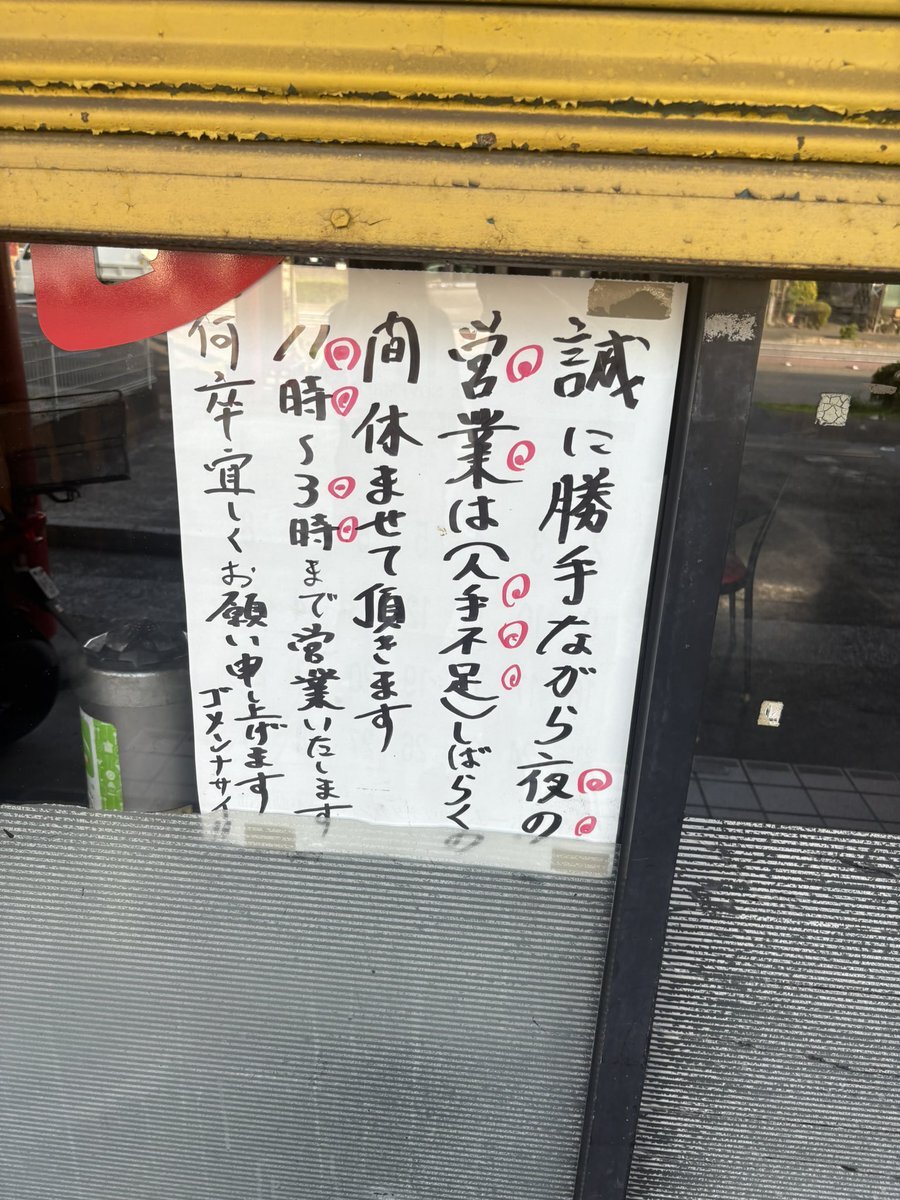 誠に勝手ながら夜の
営業は(人手不足)しばらくの
間休ませて頂きます
11時～3時まで営業いたします
何卒宜しくお願い申し上げます
ゴメンナサイ